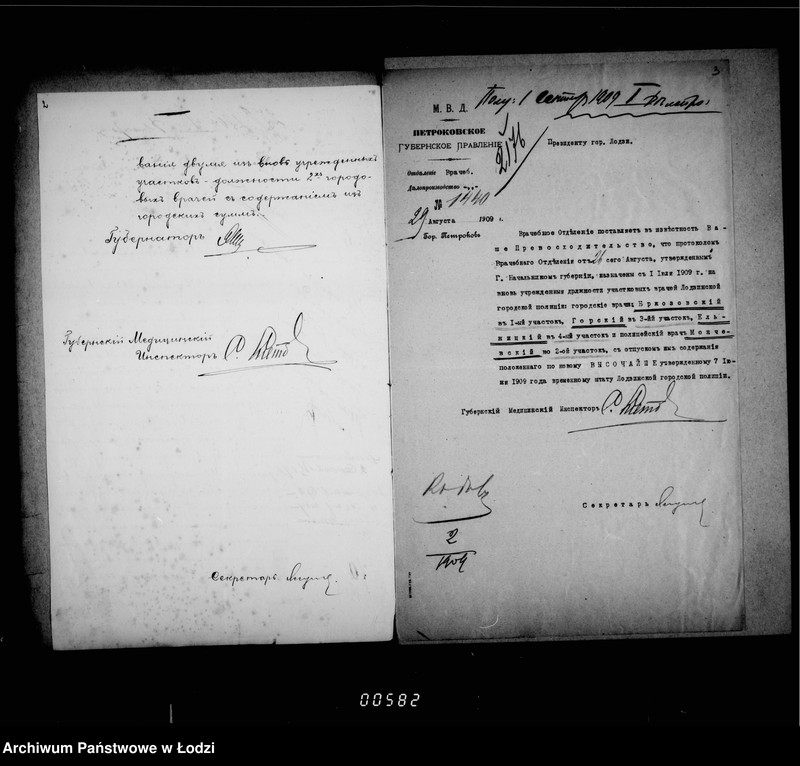 2
ванія двумя из вновь учрежденныхъ
участков - должности 2хъ городо-
выхъ врачей съ содержаніемъ изъ
городскихъ суммъ.
Губернаторъ
Губернскій Медицинскій
Инспекторъ
Секретарь
3
М. В. Д.
1909
ПЕТРОКОВСКОЕ
ГУБЕРНСКОЕ ПРАВЛЕНІЕ
2176
Президенту гор. Лодзи.
Отдѣленіе Врачеб.
Дѣлопроизводство
№ 1440
29 Августа 1909 г.
Гор. Петроковъ
Врачебное Отдѣленіе поставляетъ въ извѣстность Ва-
ше Превосходительство, что протоколомъ
Врачебнаго Отдѣленія отъ 21 сего Августа, утвержденнымъ
Г. Начальникомъ губерніи, назначены съ I Іюля 1909 г. на
вновь учрежденныя должности участковыхъ врачей Лодзинской
городской полиціи: городскіе врачи: Брзозовскій
въ I-ый участокъ, Горскій въ 3-ій участокъ, Ель-
ницкій въ 4-ый участокъ и полицейскій врачъ Монче-
вскій во 2-ой участокъ, съ отпускомъ имъ содержанія
положеннаго по новому ВЫСОЧАЙШЕ утвержденному 7 Ію-
ня 1909 года временному штату Лодзинской городской полиціи.
Губернскій Медицинскій Инспекторъ
Секретарь
2
1909
00582
Archiwum Państwowe w Łodzi